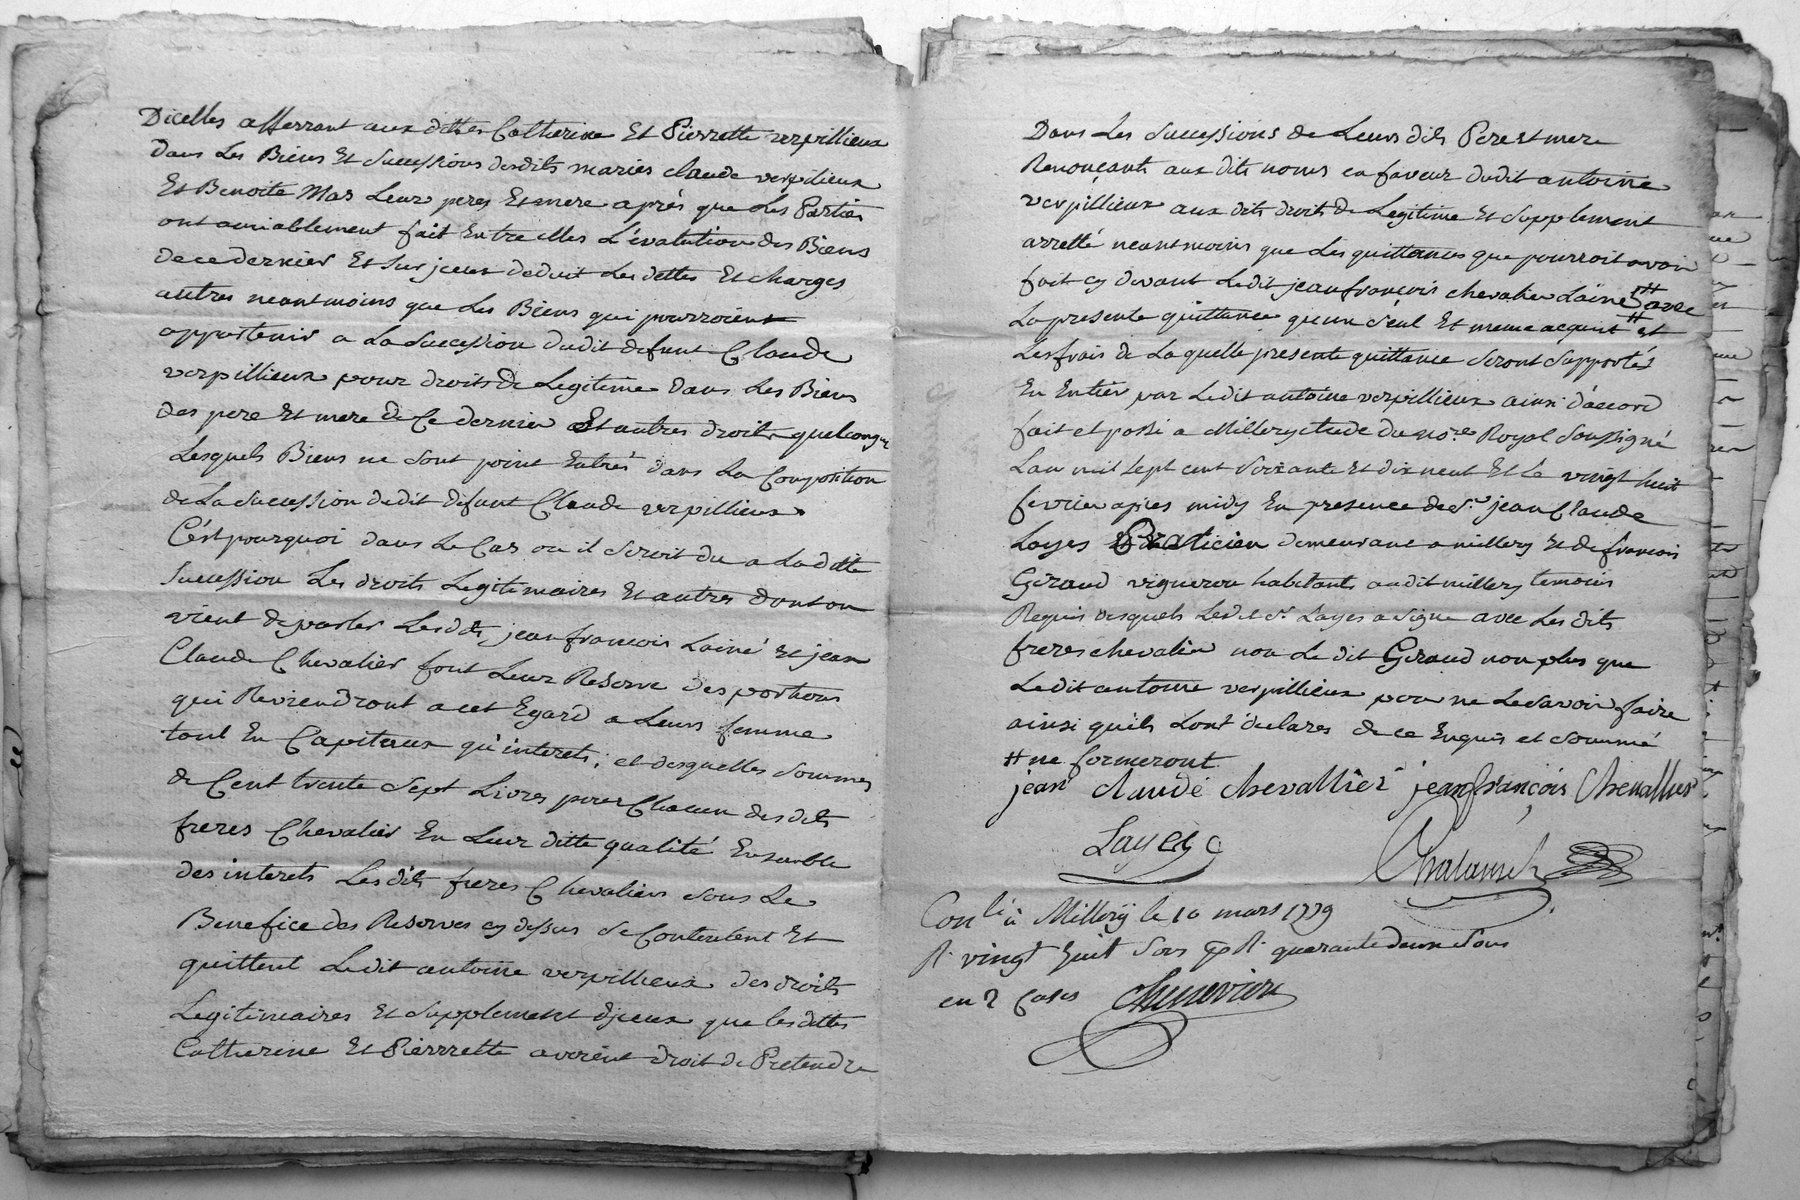 Dicelles afferrant aux dittes Catherine Et Pierrette verpillieux
Dans Les Biens Et Successions desdits mariés claude verpilieux
Et Benoite Mas Leur peres Et mere aprés que Les Parties
ont amiablement fait Entre elles L'évalution des Biens
de ce dernier Et sur jceux deduit Les dettes Et charges
autres neantmoins que Les Biens qui pourroient
appartenir a La Succession dudit defunt Claude
verpillieux pour droits de Legitime Dans Les Biens
des pere Et mere de Ce dernier Et autres droits quelconq
Lesquels Biens ne sont point Entrés dans La Composition
de La Succession dudit defunt Claude verpillieux
C'est pourquoi dans Le Cas ou il seroit du a La ditte
Succession Les droits Legitimaires Et autres dont on
vient de parler Lesdits jean francois Lainé Et jean
Claude Chevalier font Leur Reserve des portions
qui Reviendront a cet Egard a Leurs femme
tant En Capitaux qu'interets; et desquelles sommes
de Cent trente Sept Livres pour Chacun desdits
freres Chevalier En Leur ditte qualité Ensemble
des interets Lesdits freres Chevaliers sous Le
Benefice des Reserves cy dessus se Contentent Et
quittent Ledit antoine verpillieux des droits
Legitimaires Et Supplement djceux que lesdittes
Catherine Et Pierrrette avoient droit de Pretendre
Dans Les Successions de Leurs dits Pere Et mere
Renonçants aux dits noms en faveur dudit antoine
verpillieux aux dits droits de Legitime Et Supplement
arretté neantmoins que Les quittances que pourroit avoir
fait cy devant Ledit jean françois chevalier Lainé # avec
La presente quittance qu'un seul Et meme acquit # et
Les frais de Laquelle presente quittance seront Supportés
En Entier par Ledit antoine verpillieux ainsi d'accord
fait et passé a Millery etude du no.re Royal Soussigné
Lan mil sept cent soixante et dix neuf Et Le vingt huit
fevrier apres midy En presence de S.r jean Claude
Layes Praticien demeurant a millery Et de francois
Giraud vigneron habitant audit millery temoins
Requis desquels Ledit Sr. Layes a signé avec Les dits
freres chevalier non Le dit Giraud non plus que
Ledit antoine verpillieux pour ne Le savoir faire
ainsi quils sont declarés de ce Enquis et sommé
# ne formeront
jean claude chevallier jean françois Chevallier
Layes
Con.lé à Millery le 10 mars 1779
R. vingt huit sous R. quarante deux sous
en 2 Cases